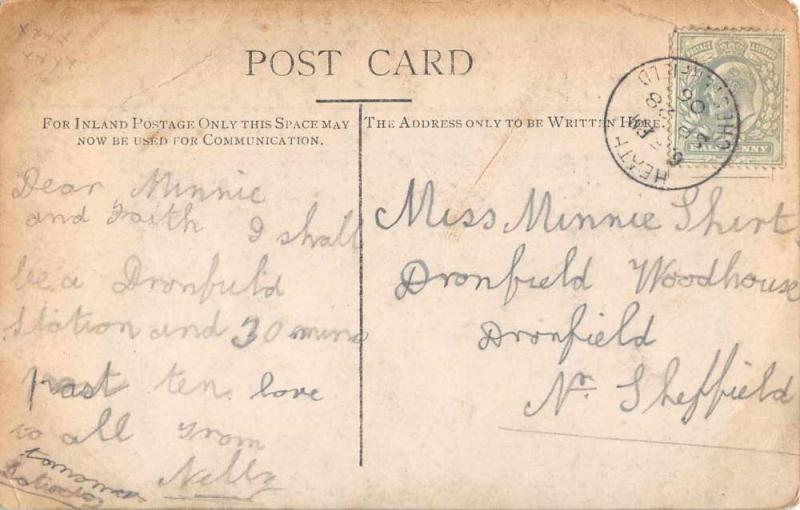 xxxx
xxxx
POST CARD
FOR INLAND POSTAGE ONLY THIS SPACE MAY
NOW BE USED FOR COMMUNICATION.
THE ADDRESS ONLY TO BE WRITTEN HERE.
HEATH CHESTERFIELD
HALFPENNY
Dear Minnie
and Faith I shall
be a Dronfield
station and 30 mins
past ten love
to all from
Nelly
Miss Minnie Shirt
Dronfield Woodhouse
Dronfield
Nr Sheffield